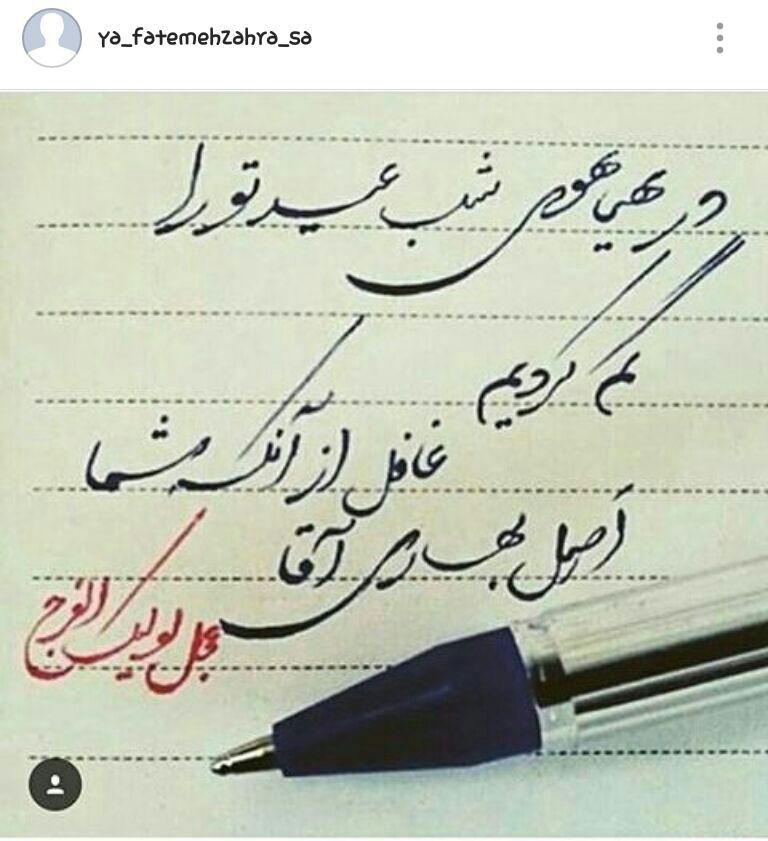 ya_fatemehzahra_sa
در هیاهوی شب عید تو را
گم کردیم
غافل از آنکه شما
أصل بهاری آقا
عجل لولیک الفرج